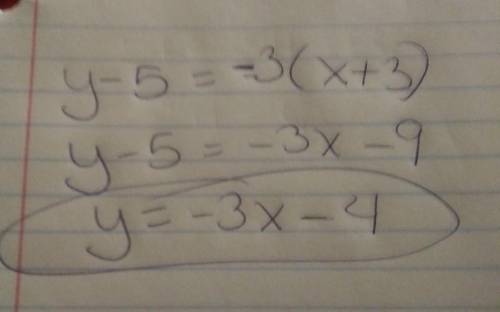 y-5 = -3(x+3)
y-5 = -3x -9
y = -3x - 4